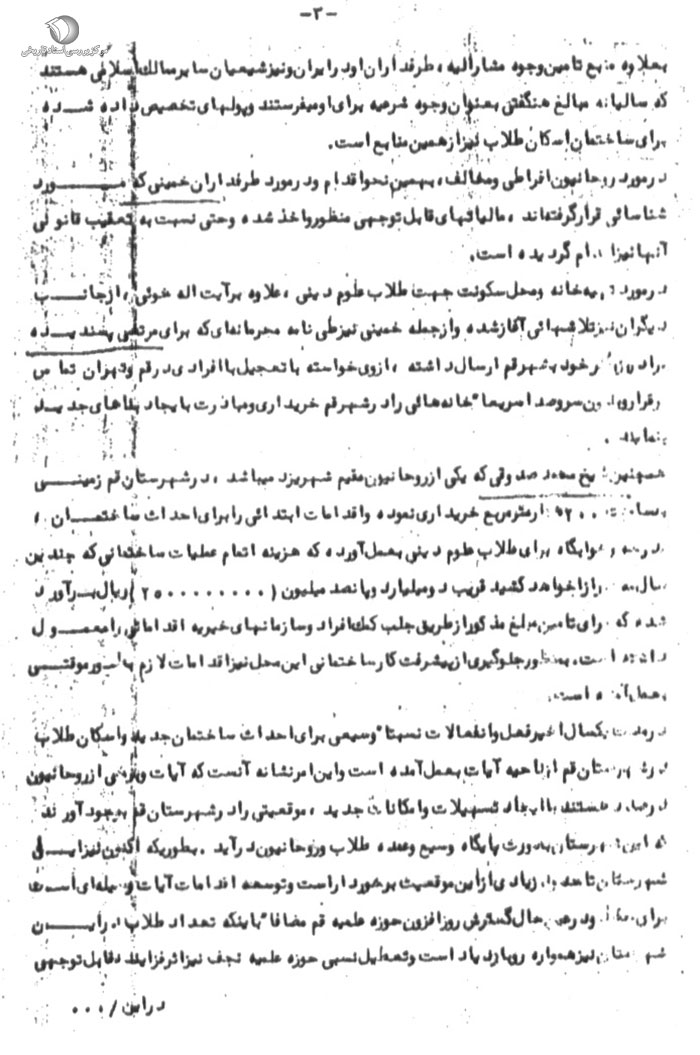 -۳-
مرکز بررسی اسناد تاریخی
بعلاوه منبع تامین وجوه مشارالیه ، طرفداران او در ایران و نیز شیعیان سایر ممالک اسلامی هستند
که سالیانه مبالغ هنگفتی بعنوان وجوه شرعیه برای او میفرستند و پولهای تخصیص داده شده
برای ساختمان اسکان طلاب نیز از همین منابع است.
در مورد روحانیون افراطی و مخالف، بهمین نحو اقدام و در مورد طرفداران خمینی که مورد
شناسائی قرار گرفته‌اند ، مالیاتهای قابل توجهی منظور و اخذ شده و حتی نسبت به تعقیب قانونی
آنها نیز اقدام گردیده است.
در مورد تهیه خانه و محل سکونت جهت طلاب علوم دینی ، علاوه بر آیت اله خوئی ، از جانب
دیگران نیز تلاشهائی آغاز شده و از جمله خمینی نیز طی نامه محرمانه‌ای که برای مرتضی پسندیده
برادر خود بشهر قم ارسال داشته ، از وی خواسته با تعجیل با افرادی در قم و تهران تماس
برقرار و بدون سر و صدا سریعا" خانه‌هائی را در شهر قم خریداری و مبادرت بایجاد بناهای جدید
بنماید .
همچنین شیخ محمد صدوقی که یکی از روحانیون مقیم شهر یزد میباشد ، در شهرستان قم زمینی
بمساحت متر مربع خریداری نموده و اقدامات ابتدائی را برای احداث ساختمان ،
مدرسه و خوابگاه برای طلاب علوم دینی بعمل آورده که هزینه اتمام عملیات ساختمانی که چندین
سال بدرازا خواهد کشید قریب دو میلیارد و پانصد میلیون (۲۵۰۰۰۰۰۰۰۰) ریال برآورد
شده که برای تامین مبلغ مذکور از طریق جلب کمک افراد و سازمانهای خیریه اقداماتی را معمول
داشته است. بمنظور جلوگیری از پیشرفت کار ساختمانی این محل نیز اقدامات لازم بطور موقتی
بعمل آمده است.
در مدت یکسال اخیر فعل و انفعالات نسبتا" وسیعی برای احداث ساختمان جدید و اسکان طلاب
در شهرستان قم از ناحیه آیات بعمل آمده است و این امر نشانه آنست که آیات و برخی از روحانیون
درصدد هستند با ایجاد تسهیلات و امکانات جدید ، موقعیتی را در شهرستان قم بوجود آورند
که این شهرستان بصورت پایگاه وسیع و عمده طلاب و روحانیون درآید . بطوریکه اکنون نیز این
شهرستان تا حدود زیادی از این موقعیت برخوردار است و توسعه اقدامات آیات وسیله‌ای است
برای و در عین حال گسترش روزافزون حوزه علمیه قم مضافا" باینکه تعداد طلاب در این
شهرستان نیز همواره رو بازدیاد است و تعطیل نسبی حوزه علمیه نجف نیز اثر فزاینده قابل توجهی
در این / ۰۰۰